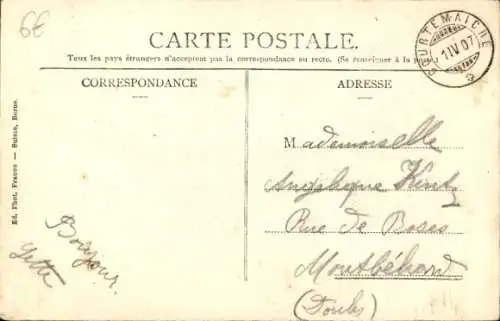 6€
CARTE POSTALE.
Tous les pays étrangers n'acceptent pas la correspondance au recto. (Se renseigner à la poste
CORRESPONDANCE
ADRESSE
COURTEMAICHE
1 IV 07
Mademoiselle
Angélique
Rue de
Montbéliard
(Doubs)
Bonjour
Yette
Ed. Phot. Franco-Suisse, Berne.